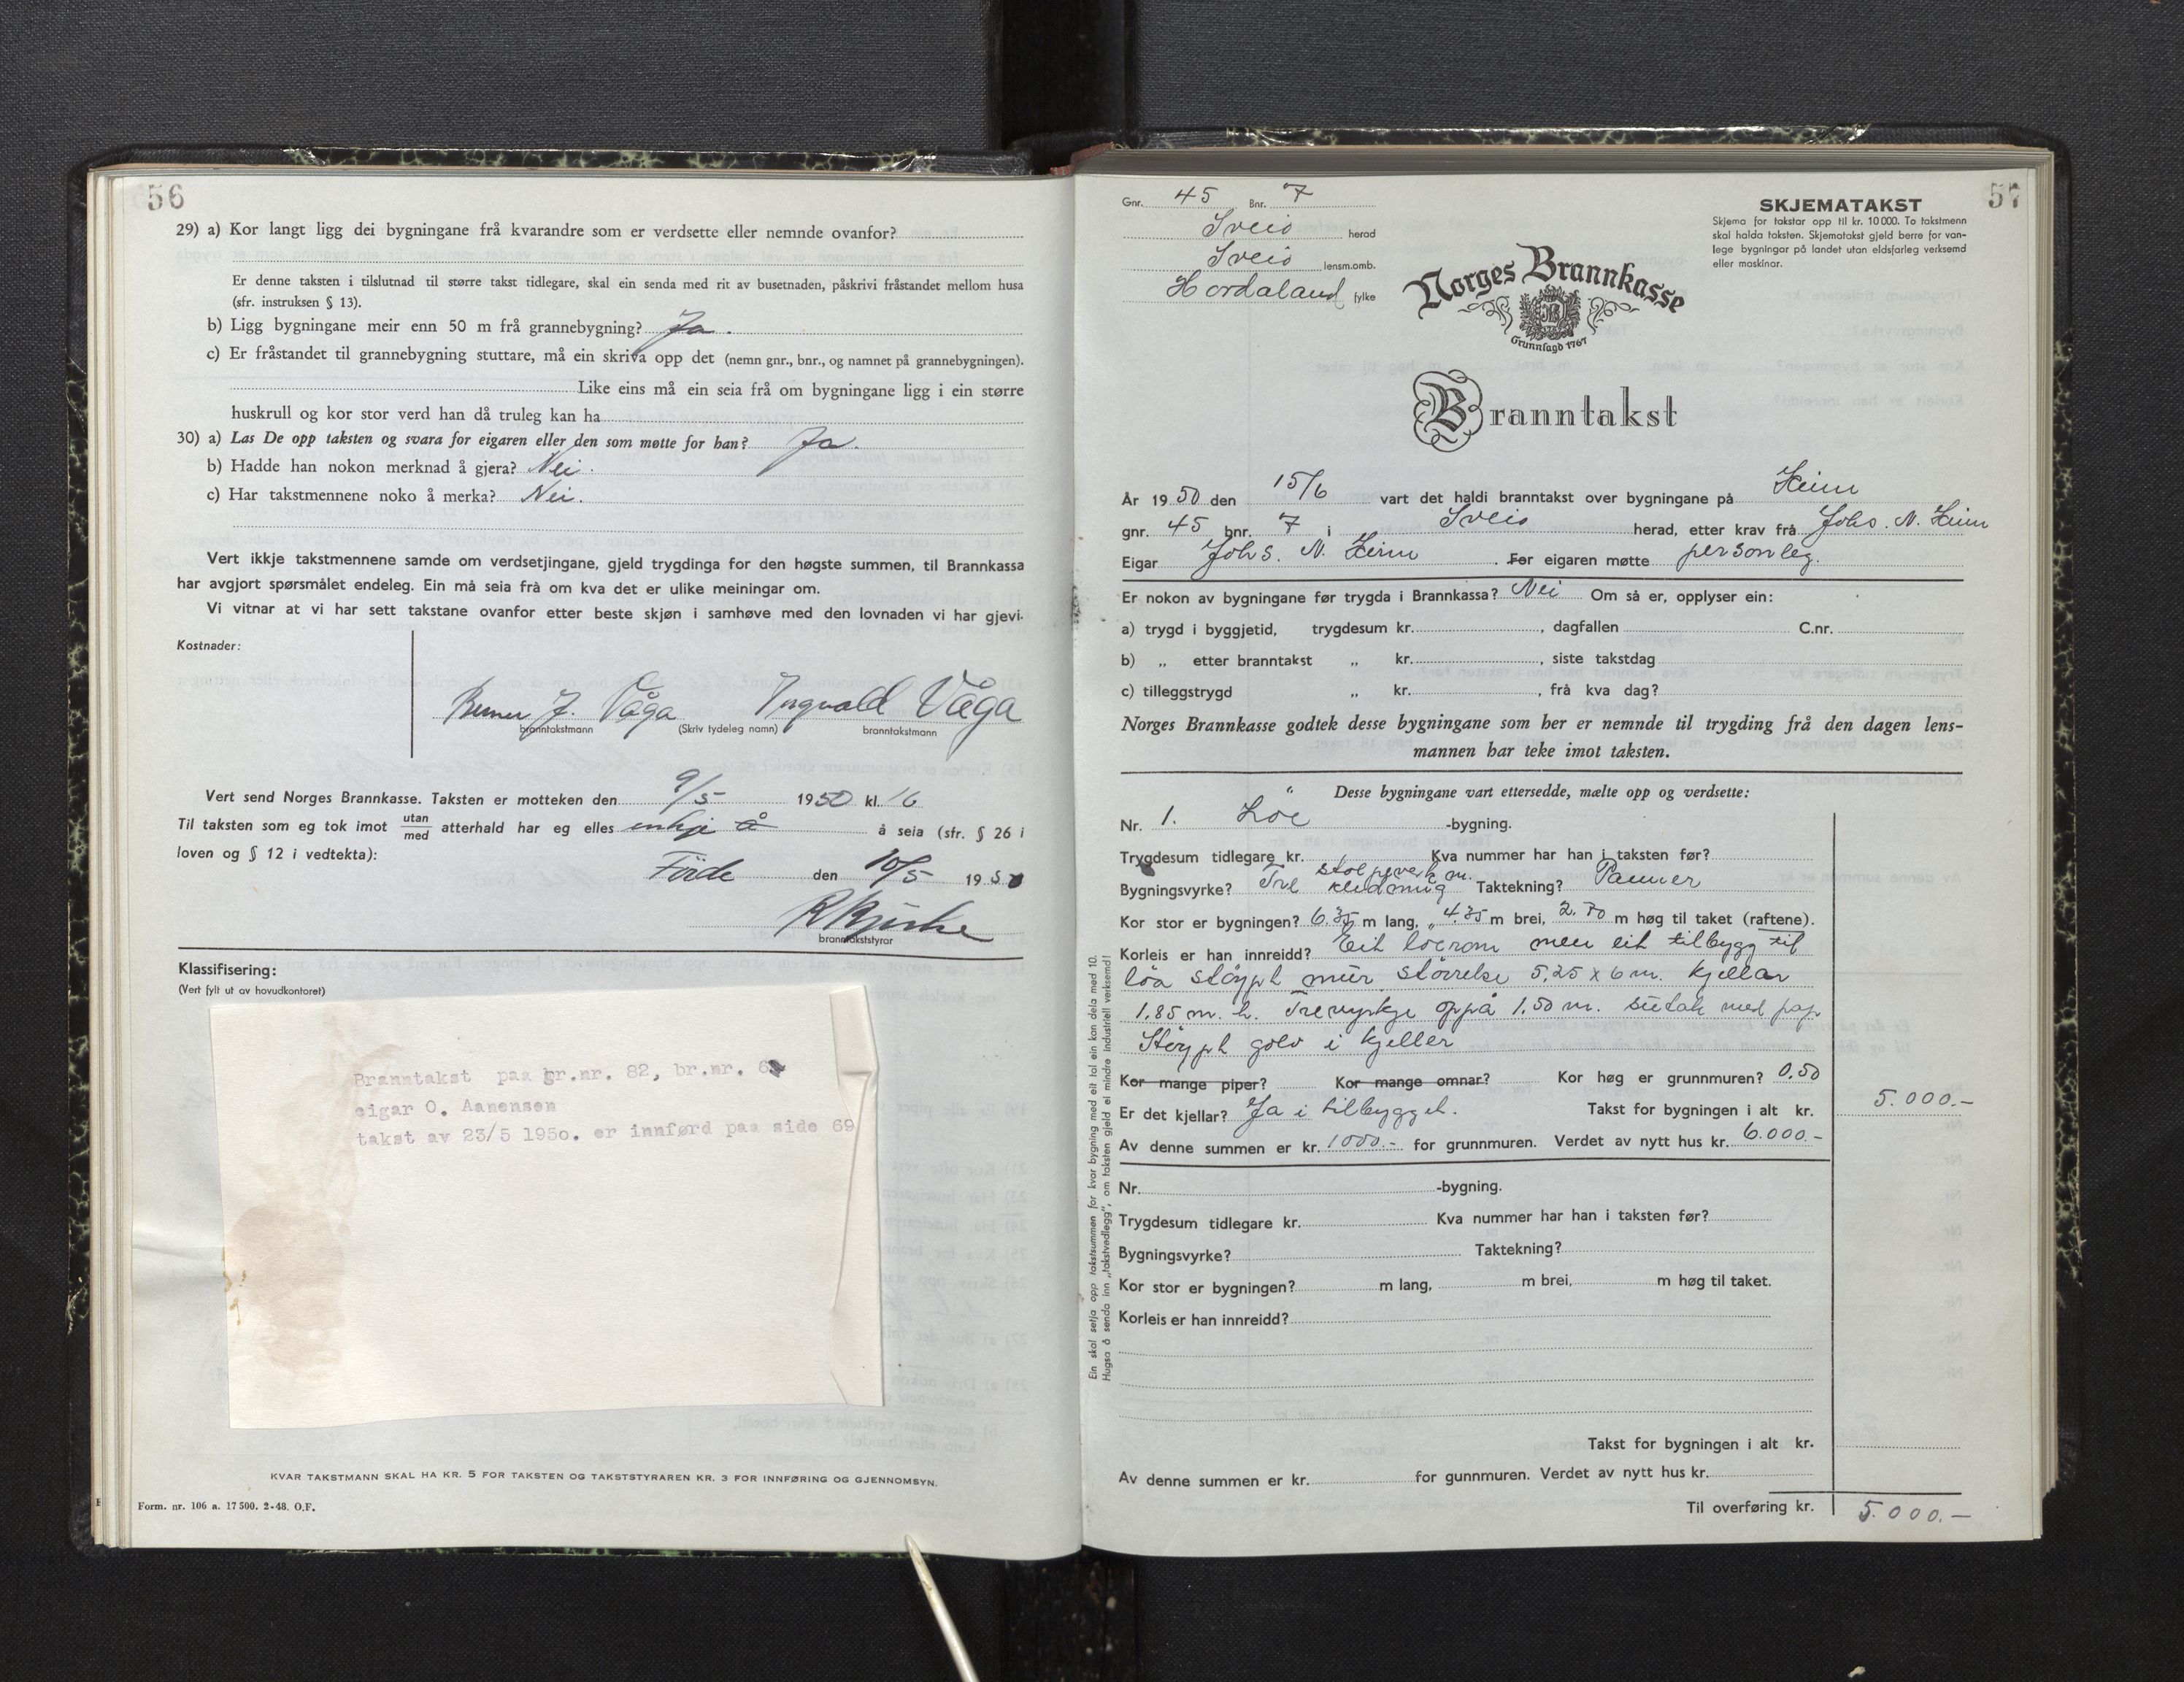 56
29) a) Kor langt ligg dei bygningane frå kvarandre som er verdsette eller nemnde ovanfor?
Er denne taksten i tilslutnad til større takst tidlegare, skal ein senda med rit av busetnaden, påskrivi fråstandet mellom husa
(sfr. instruksen § 13).
b) Ligg bygningane meir enn 50 m frå grannebygning? Ja.
c) Er fråstandet til grannebygning stuttare, må ein skriva opp det (nemn gnr., bnr., og namnet på grannebygningen).
Like eins må ein seia frå om bygningane ligg i ein større
huskrull og kor stor verd han då truleg kan ha
30) a) Las De opp taksten og svara for eigaren eller den som møtte for han? Ja.
b) Hadde han nokon merknad å gjera? Nei.
c) Har takstmennene noko å merka? Nei.
Vert ikkje takstmennene samde om verdsetjingane, gjeld trygdinga for den høgste summen, til Brannkassa
har avgjort spørsmålet endeleg. Ein må seia frå om kva det er ulike meiningar om.
Vi vitnar at vi har sett takstane ovanfor etter beste skjøn i samhøve med den lovnaden vi har gjevi.
Kostnader:
J. Våga Ingvald Våga
branntakstmann (Skriv tydeleg namn) branntakstmann
Vert send Norges Brannkasse. Taksten er motteken den 9/5 1950 kl. 16
Til taksten som eg tok imot utan/med atterhald har eg elles å å seia (sfr. § 26 i
loven og § 12 i vedtekta):
Förde den 10/5 1950
branntakststyrar
Klassifisering:
(Vert fylt ut av hovudkontoret)
Branntakst paa gr.nr. 82, br.nr. 6
eigar O. Aanensen
takst av 23/5 1950. er innførd paa side 69
KVAR TAKSTMANN SKAL HA KR. 5 FOR TAKSTEN OG TAKSTSTYRAREN KR. 3 FOR INNFØRING OG GJENNOMSYN.
Form. nr. 106 a. 17 500. 2-48. O.F.
57
Gnr. 45 Bnr. 7
Sveio herad
Sveio lensm.omb.
Hordaland fylke
SKJEMATAKST
Skjema for takstar opp til kr. 10 000. To takstmenn
skal halda taksten. Skjematakst gjeld berre for van-
lege bygningar på landet utan eldsfarleg verksemd
eller maskinar.
Norges Brannkasse
Grunnlagd 1767
Branntakst
År 1950 den 15/6 vart det haldi branntakst over bygningane på Heim
gnr. 45 bnr. 7 i Sveio herad, etter krav frå Johs. N. Heim
Eigar Johs. N. Heim. For eigaren møtte personleg.
Er nokon av bygningane før trygda i Brannkassa? Nei Om så er, opplyser ein:
a) trygd i byggjetid, trygdesum kr. , dagfallen C.nr.
b) „ etter branntakst „ kr. , siste takstdag
c) tilleggstrygd „ kr. , frå kva dag?
Norges Brannkasse godtek desse bygningane som her er nemnde til trygding frå den dagen lens-
mannen har teke imot taksten.
Desse bygningane vart ettersedde, mælte opp og verdsette:
Nr. 1. Löe -bygning.
Trygdesum tidlegare kr. Kva nummer har han i taksten før?
Bygningsvyrke? Tre stolpeverk m. kledning Taktekning? Panner
Kor stor er bygningen? 6.35 m lang, 4.35 m brei, 2.70 m høg til taket (raftene).
Korleis er han innreidd? Eit löerom men eit tilbygg til
löa stöypt mur størrelse 5,25 x 6 m. kjellar
1.85 m. h. Trevyrkje oppå 1.50 m. sutak med pap
Stöypt golv i kjeller
Kor mange piper? Kor mange omnar? Kor høg er grunnmuren? 0.50
Er det kjellar? Ja i tilbygget. Takst for bygningen i alt kr. 5.000.-
Av denne summen er kr. 1000.- for grunnmuren. Verdet av nytt hus kr. 6.000.-
Nr. -bygning.
Trygdesum tidlegare kr. Kva nummer har han i taksten før?
Bygningsvyrke? Taktekning?
Kor stor er bygningen? m lang, m brei, m høg til taket.
Korleis er han innreidd?
Takst for bygningen i alt kr.
Av denne summen er kr. for gunnmuren. Verdet av nytt hus kr.
Til overføring kr. 5.000.-
Ein skal setja opp takstsummen for kvar bygning med eit tal ein kan dela med 10.
Hugsa å senda inn „takstvedlegg", om taksten gjeld ei mindre industriell verksemd!